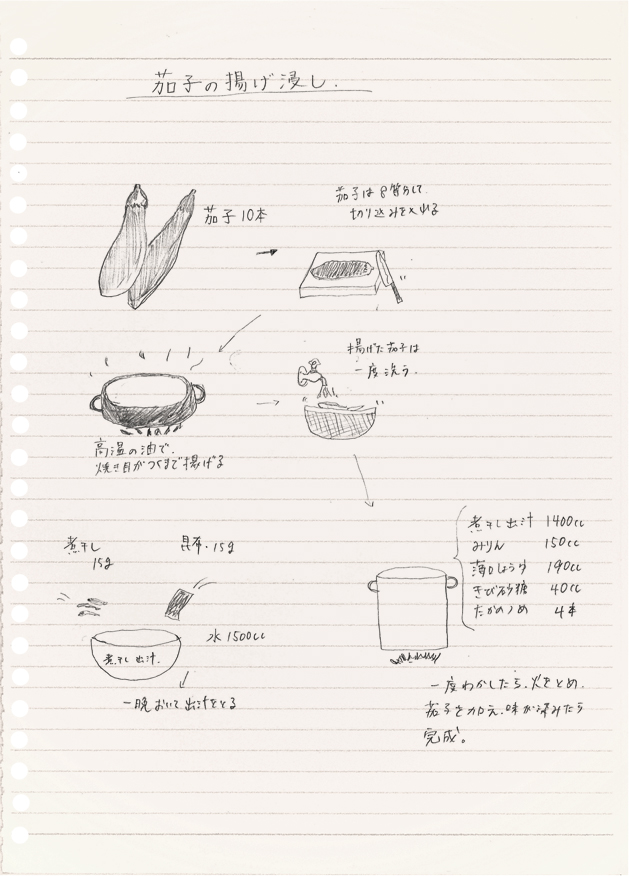 茄子の揚げ浸し.
茄子10本
茄子は8等分して.
切り込みを入れる
揚げた茄子は
一度洗う.
高温の油で.
焼き目がつくまで揚げる
煮干し
15g
昆布・15g
水1500cc
煮干し出汁.
一晩おいて出汁をとる
煮干し出汁 1400cc
みりん 150cc
薄口しょうゆ 190cc
きび砂糖 40cc
たかのつめ 4本
一度わかしたら.火をとめ.
茄子を加え.味が染みたら
完成。